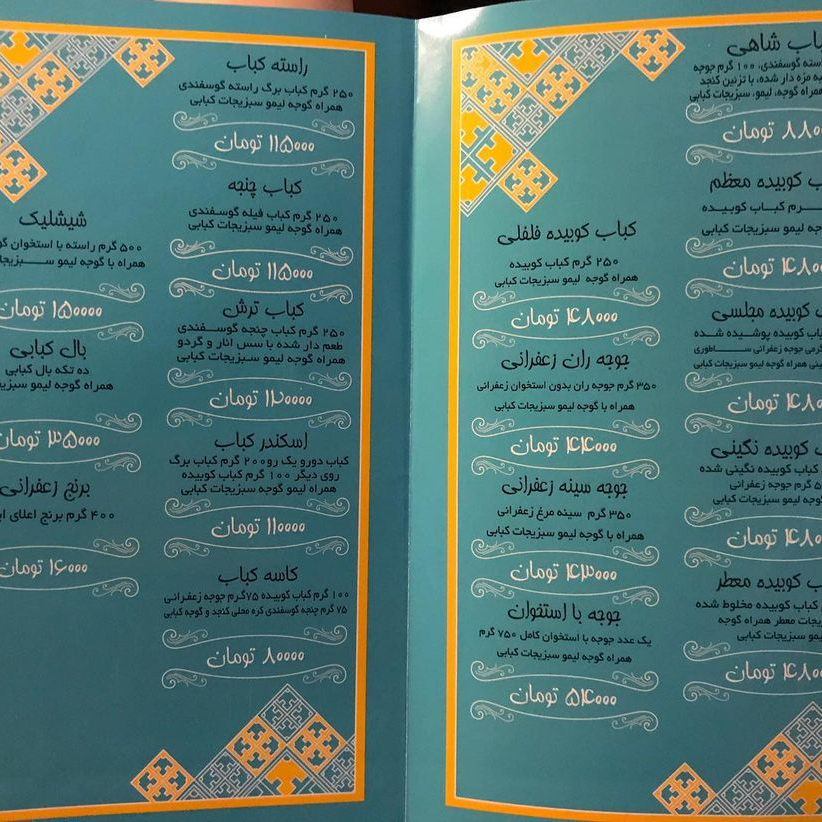 کباب شاهی
راسته گوسفندی، ۱۰۰ گرم جوجه
مزه دار شده، با تزئین کنجد
همراه گوجه، لیمو، سبزیجات کبابی
تومان
کوبیده معظم
گرم کباب کوبیده
لیمو سبزیجات کبابی
تومان
کوبیده مجلسی
کباب کوبیده پوشیده شده
گرمی جوجه زعفرانی ساطوری
همراه گوجه لیمو سبزیجات کبابی
تومان
کوبیده نگینی
کباب کوبیده نگینی شده
گرم جوجه زعفرانی
گوجه لیمو سبزیجات کبابی
تومان
کوبیده معطر
کباب کوبیده مخلوط شده
معطر همراه گوجه
لیمو سبزیجات کبابی
تومان
کباب کوبیده فلفلی
۲۵۰ گرم کباب کوبیده
همراه گوجه لیمو سبزیجات کبابی
۴۸۰۰۰ تومان
جوجه ران زعفرانی
۳۵۰ گرم جوجه ران بدون استخوان زعفرانی
همراه با گوجه لیمو سبزیجات کبابی
۴۴۰۰۰ تومان
جوجه سینه زعفرانی
۳۵۰ گرم سینه مرغ زعفرانی
همراه با گوجه لیمو سبزیجات کبابی
۴۳۰۰۰ تومان
جوجه با استخوان
یک عدد جوجه با استخوان کامل ۷۵۰ گرم
همراه گوجه لیمو سبزیجات کبابی
۵۴۰۰۰ تومان
راسته کباب
۲۵۰ گرم کباب برگ راسته گوسفندی
همراه گوجه لیمو سبزیجات کبابی
۱۱۵۰۰۰ تومان
کباب چنجه
۲۵۰ گرم کباب فیله گوسفندی
همراه گوجه لیمو سبزیجات کبابی
۱۱۵۰۰۰ تومان
کباب ترش
۲۵۰ گرم کباب چنجه گوسفندی
طعم دار شده با سس انار و گردو
همراه با گوجه لیمو سبزیجات کبابی
۱۲۰۰۰۰ تومان
اسکندر کباب
کباب دورو یک رو ۲۰۰ گرم کباب برگ
روی دیگر ۱۰۰ گرم کباب کوبیده
همراه لیمو گوجه سبزیجات کبابی
۱۱۰۰۰۰ تومان
کاسه کباب
۱۰۰ گرم کباب کوبیده ۷۵ گرم جوجه زعفرانی
۷۵ گرم چنجه گوسفندی کره محلی کنجد و گوجه کبابی
۸۰۰۰۰ تومان
شیشلیک
۵۰۰ گرم راسته با استخوان
همراه با گوجه لیمو
۱۵۰۰۰۰ تومان
بال کبابی
ده تکه بال کبابی
همراه گوجه لیمو
۳۵۰۰۰ تومان
برنج زعفرانی
۴۰۰ گرم برنج اعلای
۱۶۰۰۰ تومان